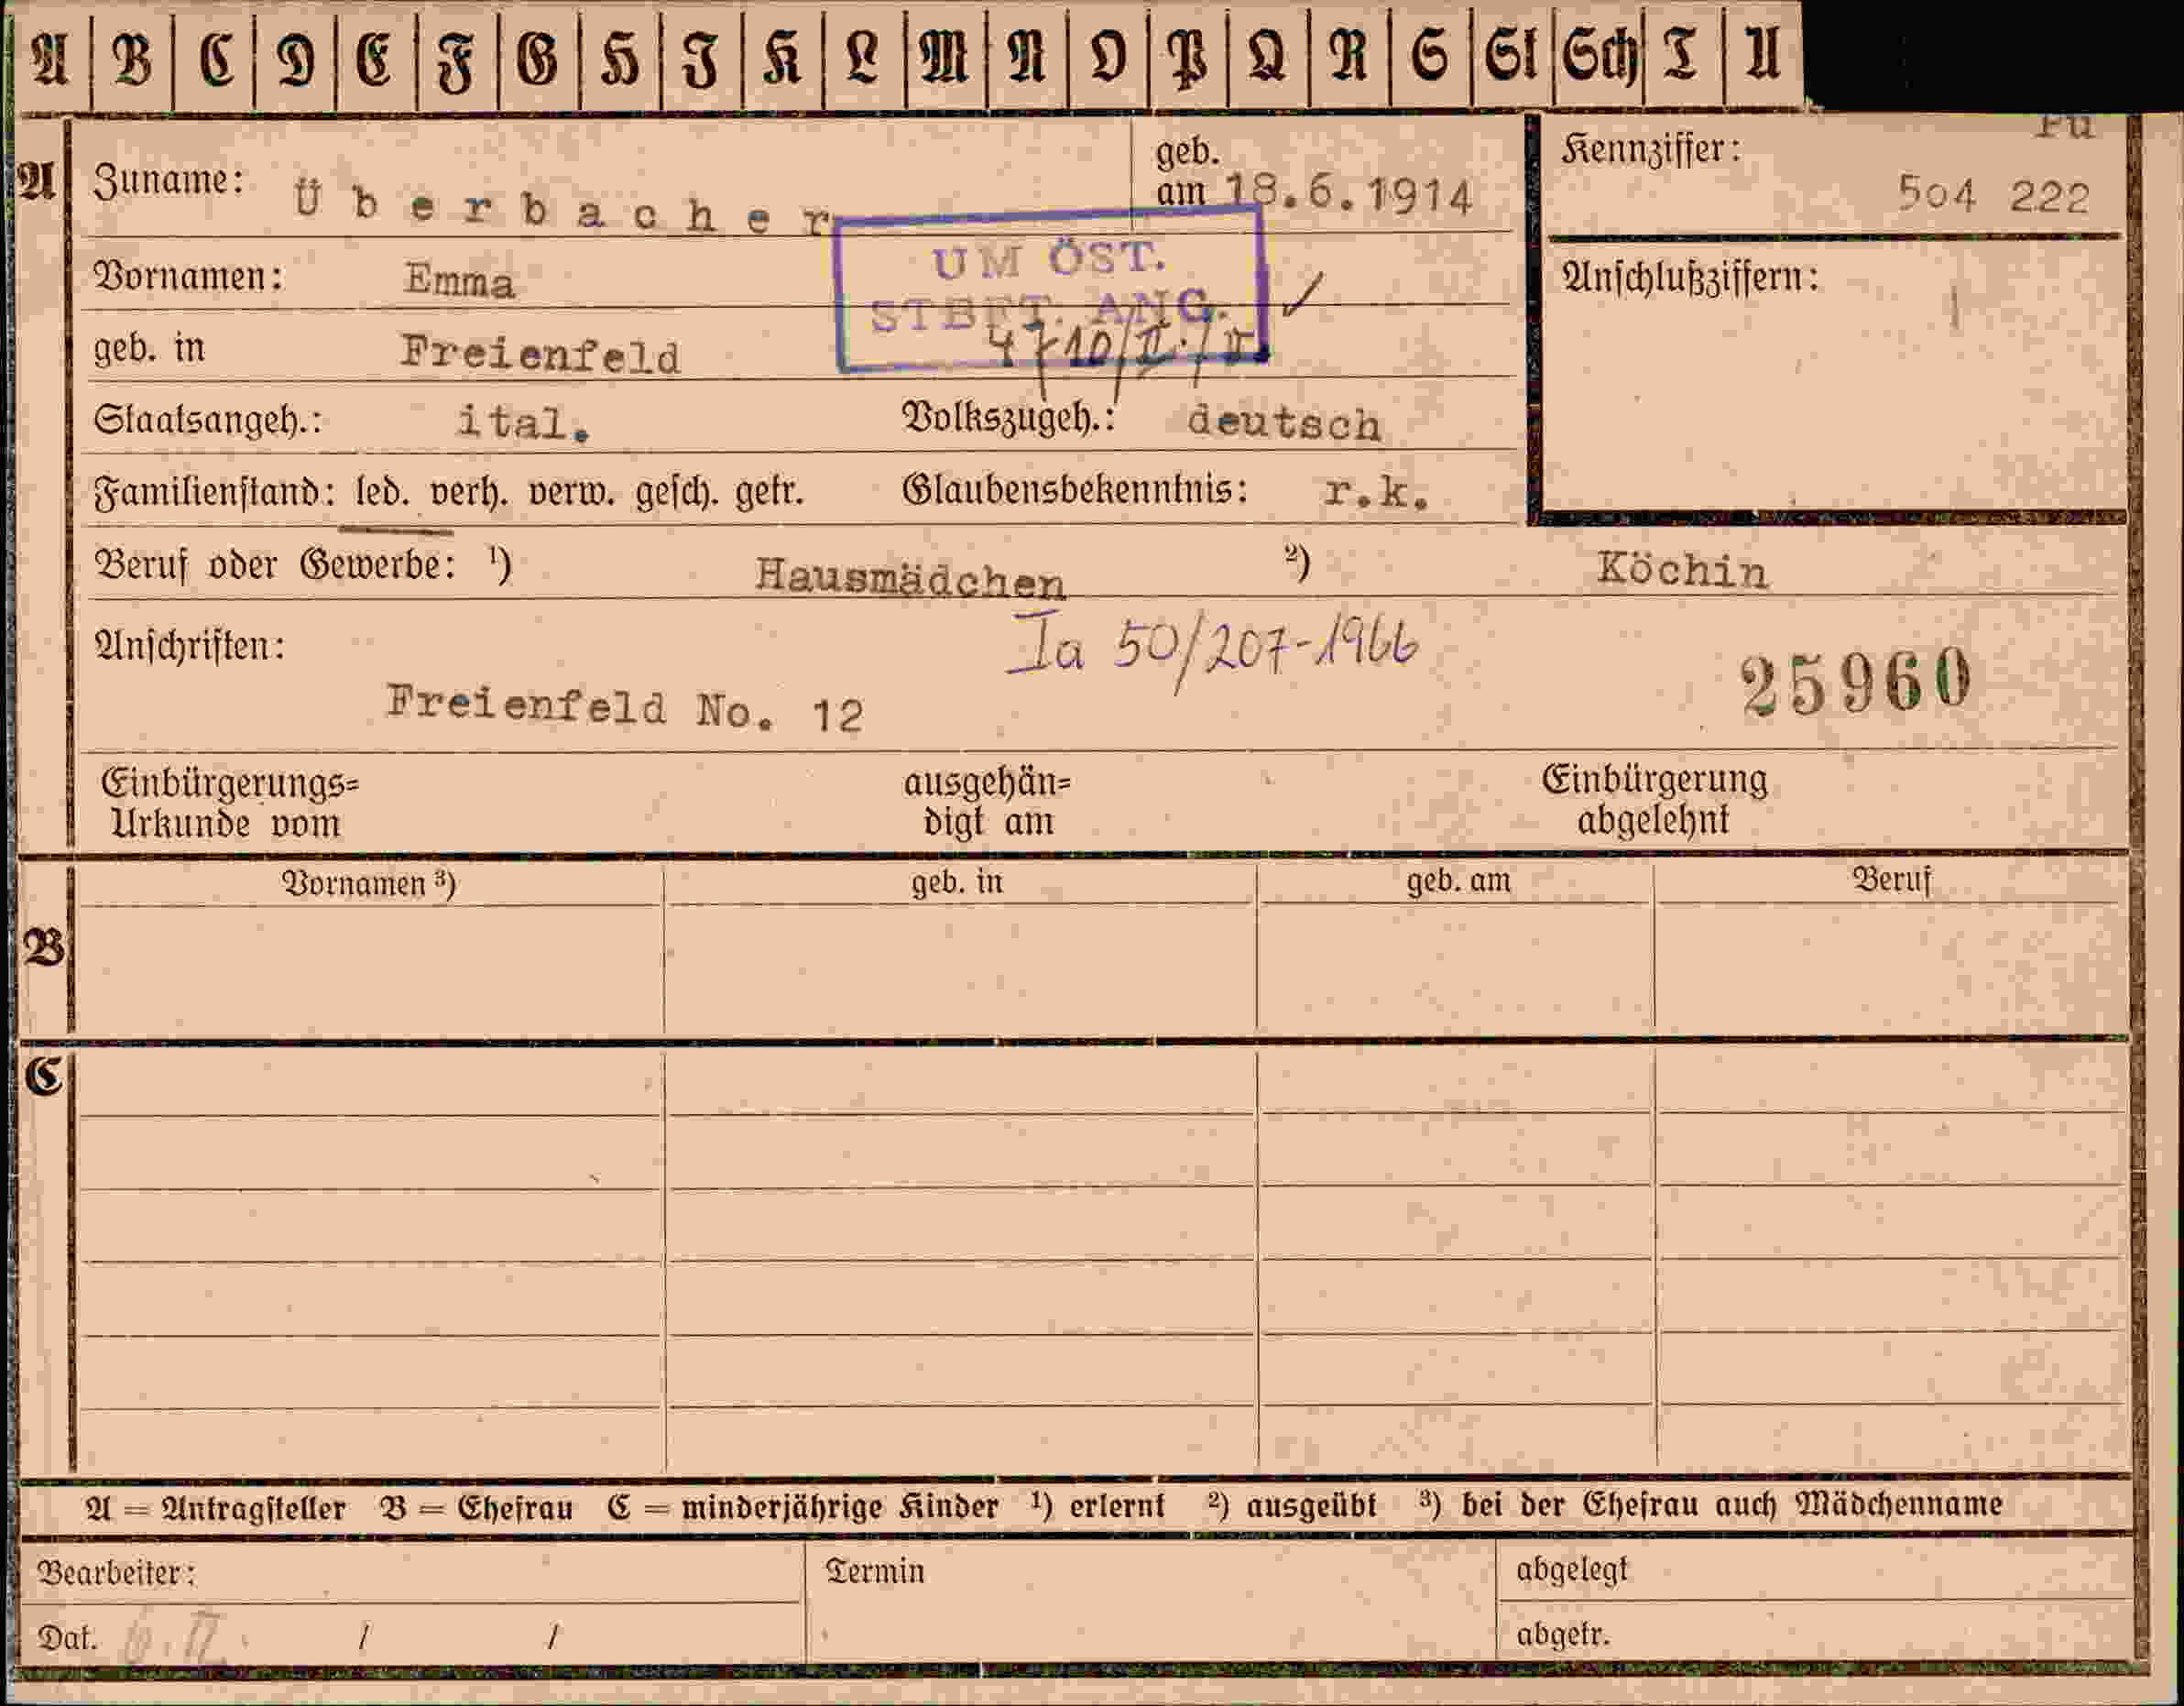 A B C D E F G H I K L M N O P Q R S St Sch T U
A Zuname: Überbacher geb. am 18.6.1914
Kennziffer: 504 222
Vornamen: Emma
UM ÖST.
STBFT. ANG.
Anschlußziffern:
geb. in Freienfeld
Staatsangeh.: ital. Volkszugeh.: deutsch
Familienstand: led. verh. verw. gesch. getr. Glaubensbekenntnis: r.k.
Beruf oder Gewerbe: ¹) Hausmädchen ²) Köchin
Anschriften: Ia 50/207-1966
Freienfeld No. 12 25960
Einbürgerungs= ausgehän= Einbürgerung
Urkunde vom digt am abgelehnt
B Vornamen ³) geb. in geb. am Beruf
C
A = Antragsteller B = Ehefrau C = minderjährige Kinder ¹) erlernt ²) ausgeübt ³) bei der Ehefrau auch Mädchenname
Bearbeiter: Termin abgelegt
Dat. / / abgetr.